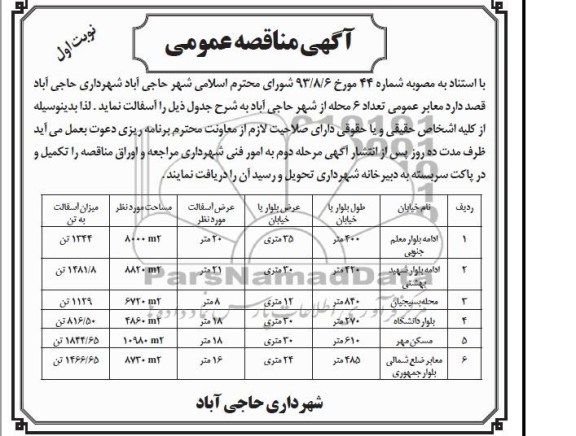 نوبت اول
آگهی مناقصه عمومی
با استناد به مصوبه شماره ۴۴ مورخ ۹۳/۸/۶ شورای محترم اسلامی شهر حاجی آباد شهرداری حاجی آباد
قصد دارد معابر عمومی تعداد ۶ محله از شهر حاجی آباد به شرح جدول ذیل را آسفالت نماید . لذا بدینوسیله
از کلیه اشخاص حقیقی و یا حقوقی دارای صلاحیت لازم از معاونت محترم برنامه ریزی دعوت بعمل می آید
ظرف مدت ده روز پس از انتشار آگهی مرحله دوم به امور فنی شهرداری مراجعه و اوراق مناقصه را تکمیل و
در پاکت سربسته به دبیرخانه شهرداری تحویل و رسید آن را دریافت نمایند .
ردیف نام خیابان طول بلوار یا خیابان عرض بلوار یا خیابان عرض آسفالت مورد نظر مساحت مورد نظر میزان آسفالت به تن
۱ ادامه بلوار معلم جنوبی ۴۰۰ متر ۳۵ متری ۲۰ متر ۸۰۰۰ m۲ ۱۳۴۴ تن
۲ ادامه بلوار شهید بهشتی ۴۲۰ متر ۳۰ متری ۲۱ متر ۸۸۲۰ m۲ ۱۴۸۱/۸ تن
۳ محله بسیجیان ۸۴۰ متر ۱۲ متری ۸ متر ۶۷۲۰ m۲ ۱۱۲۹ تن
۴ بلوار دانشگاه ۲۷۰ متر ۳۰ متری ۱۸ متر ۴۸۶۰ m۲ ۸۱۶/۵۰ تن
۵ مسکن مهر ۶۱۰ متر ۳۰ متری ۱۸ متر ۱۰۹۸۰ m۲ ۱۸۴۴/۶۵ تن
۶ معابر ضلع شمالی بلوار جمهوری ۴۸۵ متر ۲۴ متری ۱۶ متر ۸۷۳۰ m۲ ۱۴۶۶/۶۵ تن
ParsNamadData
شهرداری حاجی آباد